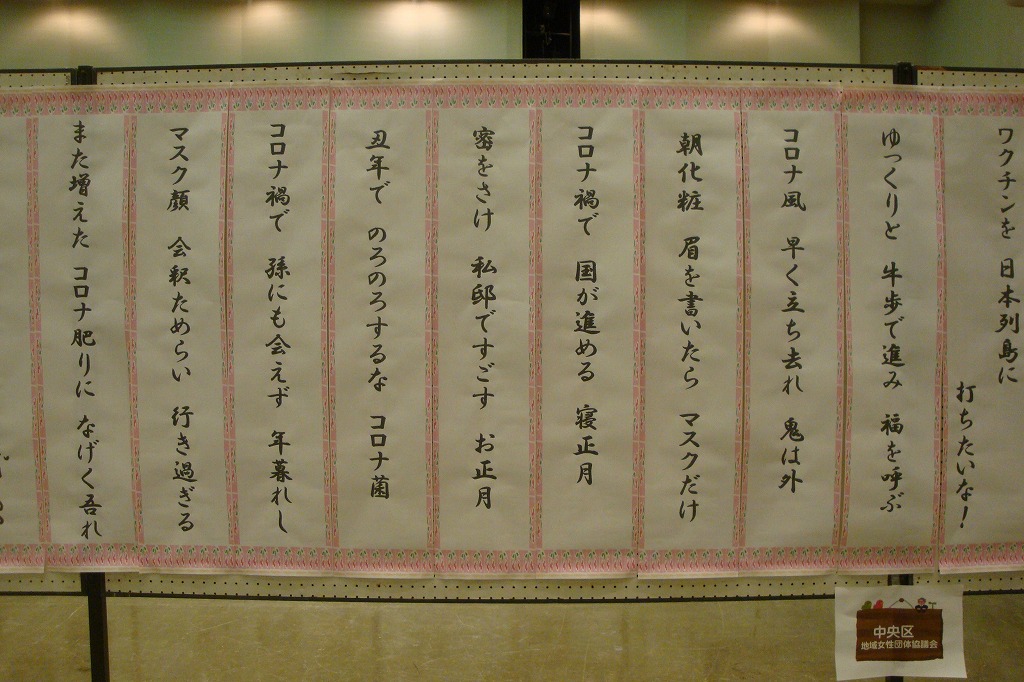 ワクチンを 日本列島に
打ちたいな!
ゆっくりと 牛歩で進み 福を呼ぶ
コロナ風 早く立ち去れ 鬼は外
朝化粧 眉を書いたら マスクだけ
コロナ禍で 国が進める 寝正月
密をさけ 私邸ですごす お正月
丑年で のろのろするな コロナ菌
コロナ禍で 孫にも会えず 年暮れし
マスク顔 会釈ためらい 行き過ぎる
また増えた コロナ肥りに なげく吾れ
中央区
地域女性団体協議会